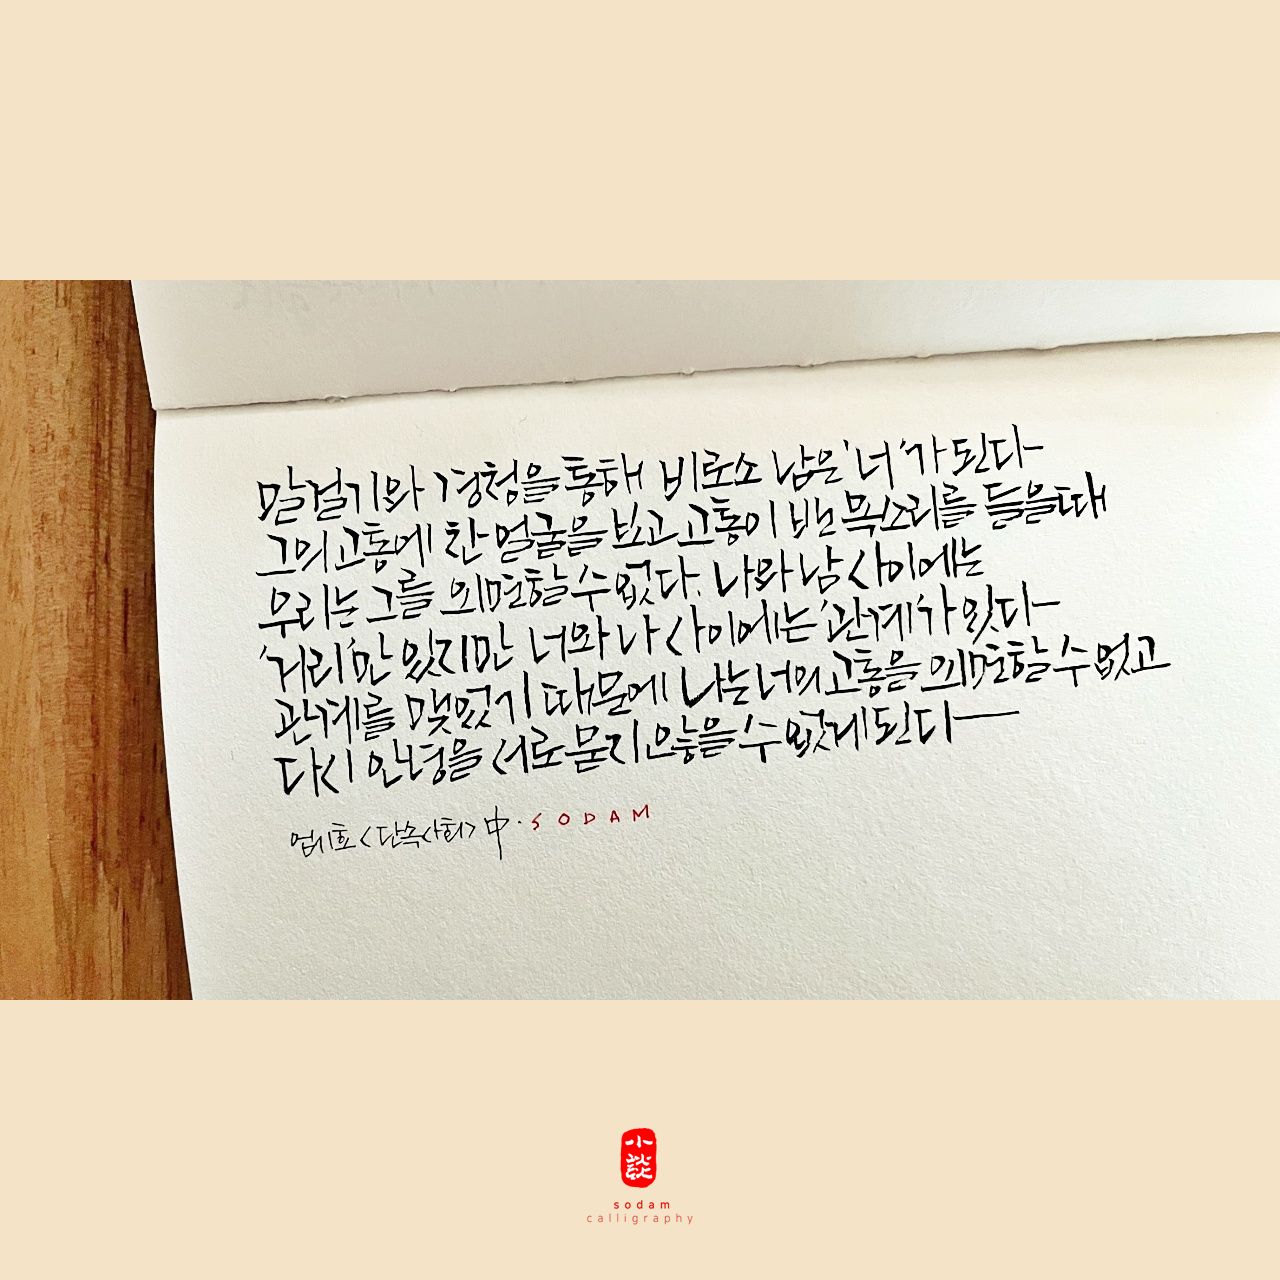 말걸기와 경청을 통해 비로소 남은 '너'가 된다
그의 고통에 찬 얼굴을 보고 고통이 밴 목소리를 들을 때
우리는 그를 외면할 수 없다. 나와 남 사이에는
'거리'만 있지만 너와 나 사이에는 '관계'가 있다
관계를 맺었기 때문에 나는 너의 고통을 외면할 수 없고
다시 안녕을 서로 묻지 않을 수 없게 된다
엄기호 <단속사회> 中. SODAM
小談
sodam
calligraphy